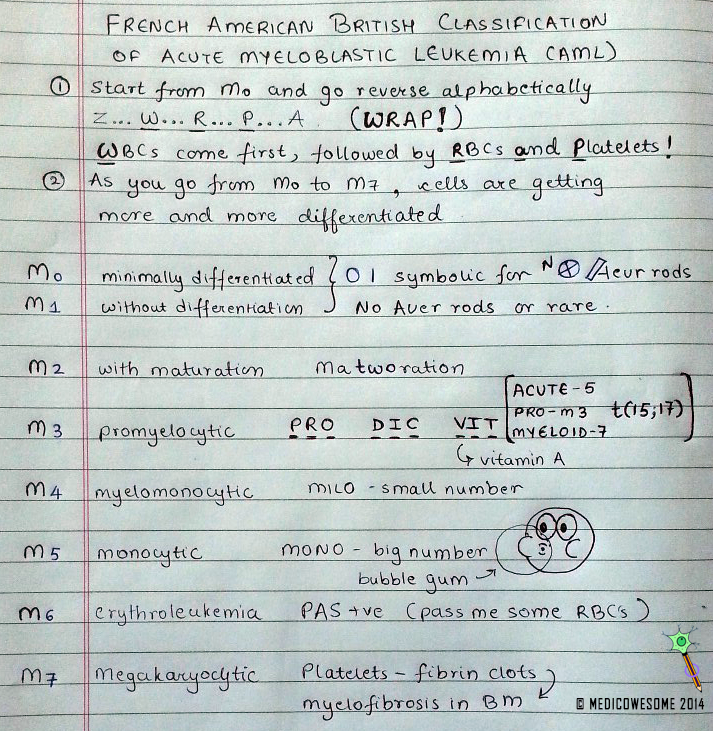 FRENCH AMERICAN BRITISH CLASSIFICATION
OF ACUTE MYELOBLASTIC LEUKEMIA (AML)
① Start from M0 and go reverse alphabetically
Z... W... R... P... A (WRAP!)
WBCs come first, followed by RBCs and Platelets!
② As you go from M0 to M7, cells are getting
more and more differentiated
M0 minimally differentiated } 0 1 symbolic for NO Aeur rods
M1 without differentiation No Auer rods or rare.
M2 with maturation Matworation
M3 promyelocytic PRO DIC VIT [ACUTE-5
PRO-M3 t(15;17)
MYELOID-7]
↳ vitamin A
M4 myelomonocytic MILO - small number
M5 monocytic MONO - big number
bubble gum →
M6 erythroleukemia PAS +ve (pass me some RBC's)
M7 Megakaryocytic Platelets - fibrin clots
myelofibrosis in BM
© MEDICOWESOME 2014